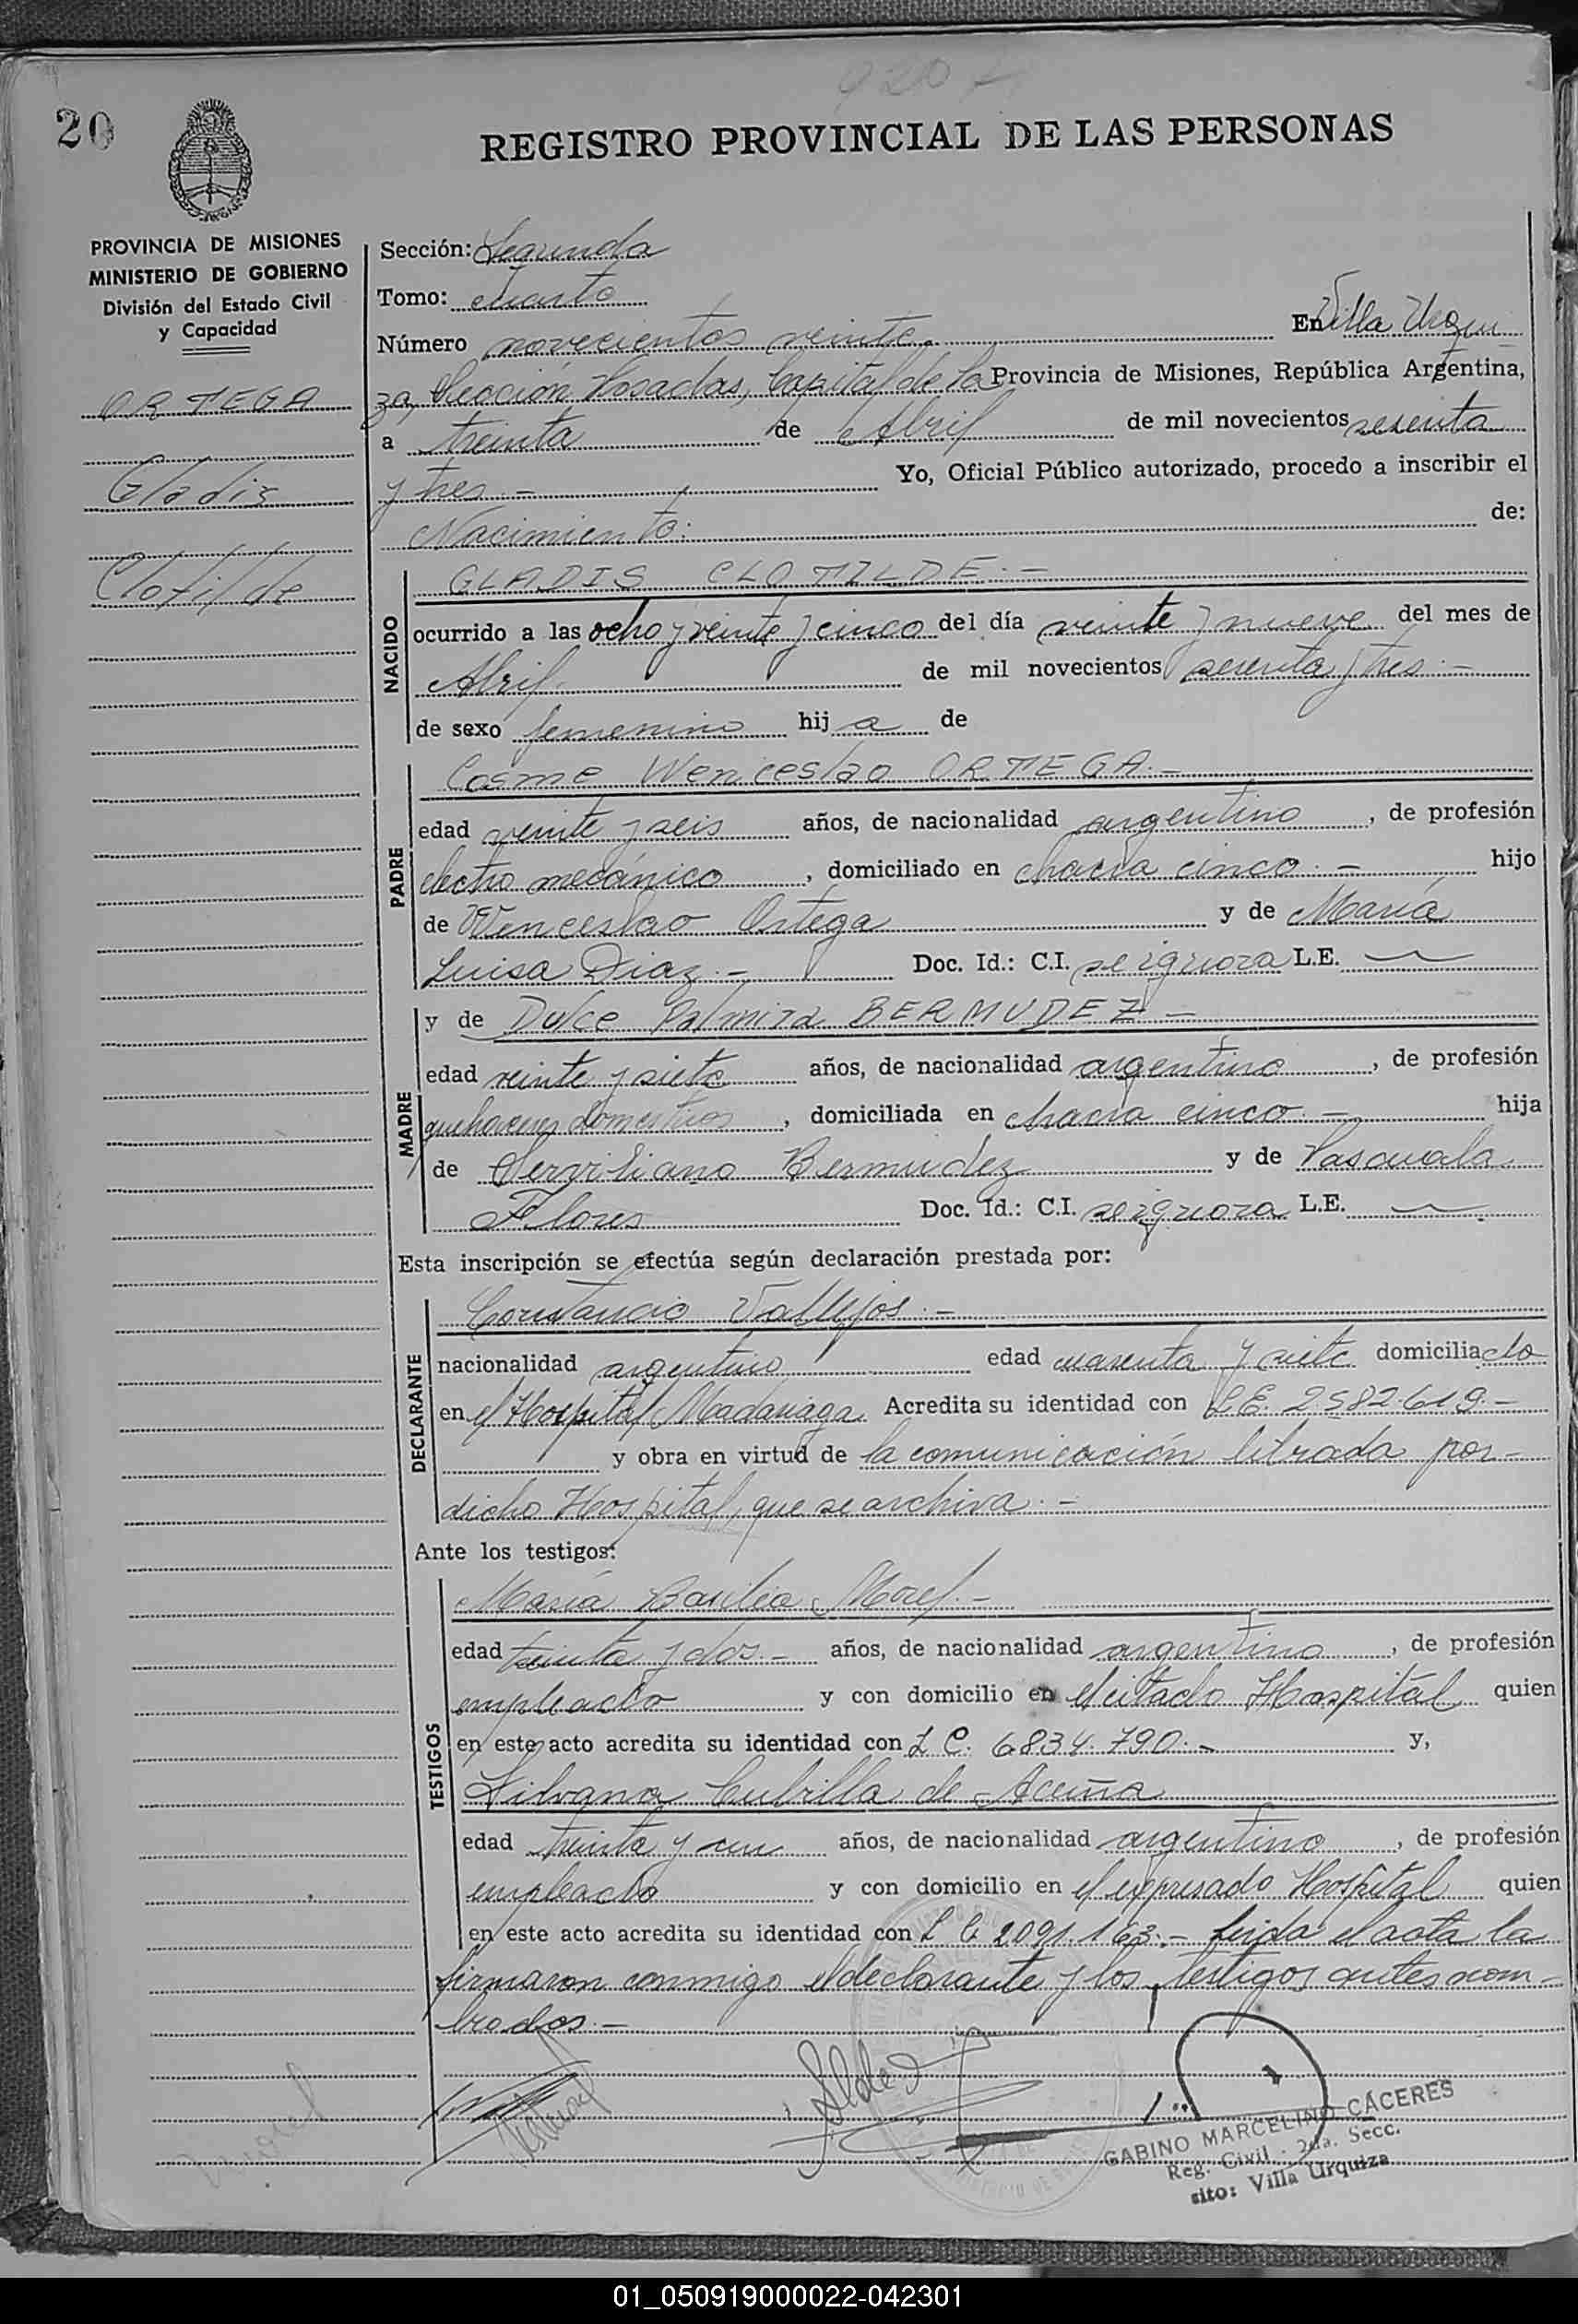 920
20
REGISTRO PROVINCIAL DE LAS PERSONAS
PROVINCIA DE MISIONES
MINISTERIO DE GOBIERNO
División del Estado Civil
y Capacidad
ORTEGA
Gladis
Clotilde
Sección: Segunda
Tomo: cuarto
Número novecientos veinte.- En Villa Urqui
za, Sección Posadas, Capital de la Provincia de Misiones, República Argentina,
a treinta de Abril de mil novecientos sesenta
y tres.- Yo, Oficial Público autorizado, procedo a inscribir el
Nacimiento: de:
NACIDO
GLADIS CLOTILDE.-
ocurrido a las ocho y veinte y cinco del día veinte y nueve del mes de
Abril de mil novecientos sesenta y tres.-
de sexo femenino hija de
PADRE
Cosme Wenceslao ORTEGA.-
edad veinte y seis años, de nacionalidad argentino, de profesión
electro mecánico, domiciliado en chacra cinco.- hijo
de Wenceslao Ortega y de María
Luisa Diaz.- Doc. Id.: C.I. se ignora L.E.
MADRE
y de Dulce Palmira BERMUDEZ-
edad veinte y siete años, de nacionalidad argentino, de profesión
quehaceres domesticos, domiciliada en chacra cinco.- hija
de Serviliano Bermudez y de Pascuala
Flores Doc. Id.: C.I. se ignora L.E.
Esta inscripción se efectúa según declaración prestada por:
DECLARANTE
Constancio Vallejos.-
nacionalidad argentino edad cuarenta y siete domiciliado
en el Hospital Madariaga Acredita su identidad con L.E. 2582.619.-
y obra en virtud de la comunicación librada por-
dicho Hospital, que se archiva.-
Ante los testigos:
TESTIGOS
María Basilia Morel.-
edad treinta y dos.- años, de nacionalidad argentino, de profesión
empleado y con domicilio en el citado Hospital quien
en este acto acredita su identidad con L C. 6834.790.- y,
Silvana Cubilla de Acuña
edad treinta y un años, de nacionalidad argentino, de profesión
empleado y con domicilio en el expresado Hospital quien
en este acto acredita su identidad con L C 2091.163.- Leida el acta la
firmaron conmigo el declarante y los testigos antes nom-
brados.-
GABINO MARCELINO CÁCERES
Reg. Civil - 2da. Secc.
sito: Villa Urquiza
01_050919000022-042301